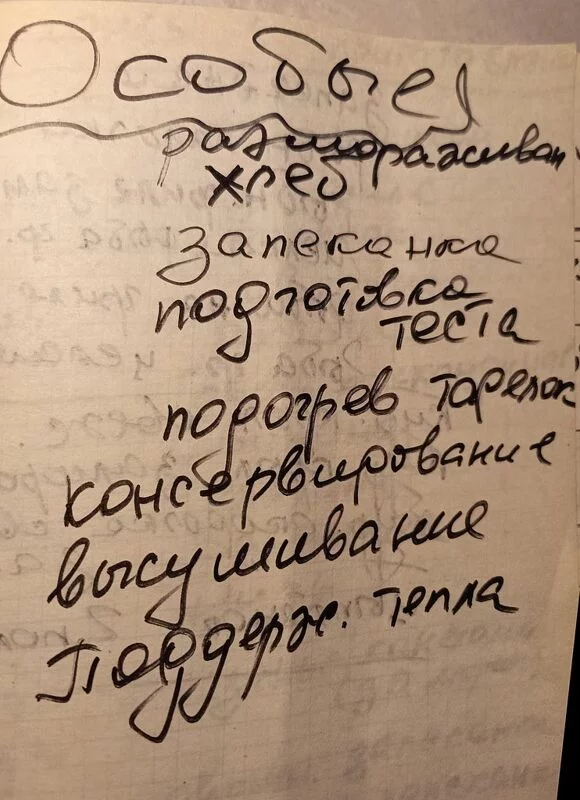 Особые
размораживан
хлеб
запеканка
подготовка
теста
подогрев тарелок
консервирование
высушивание
Поддерж. тепла